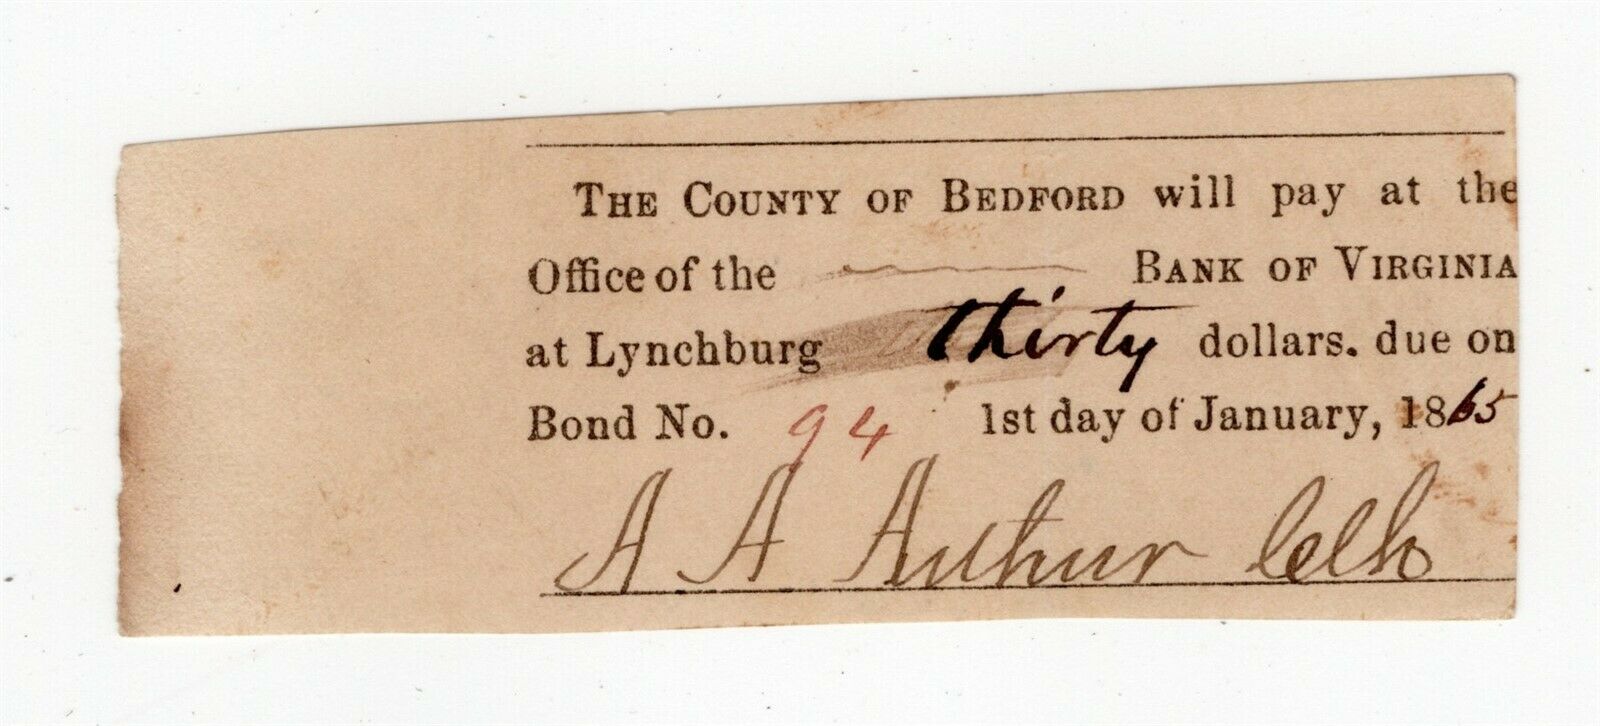 THE COUNTY OF BEDFORD will pay at the
Office of the BANK OF VIRGINIA
at Lynchburg thirty dollars. due on
Bond No. 94 1st day of January, 1865
A A Arthur Clk